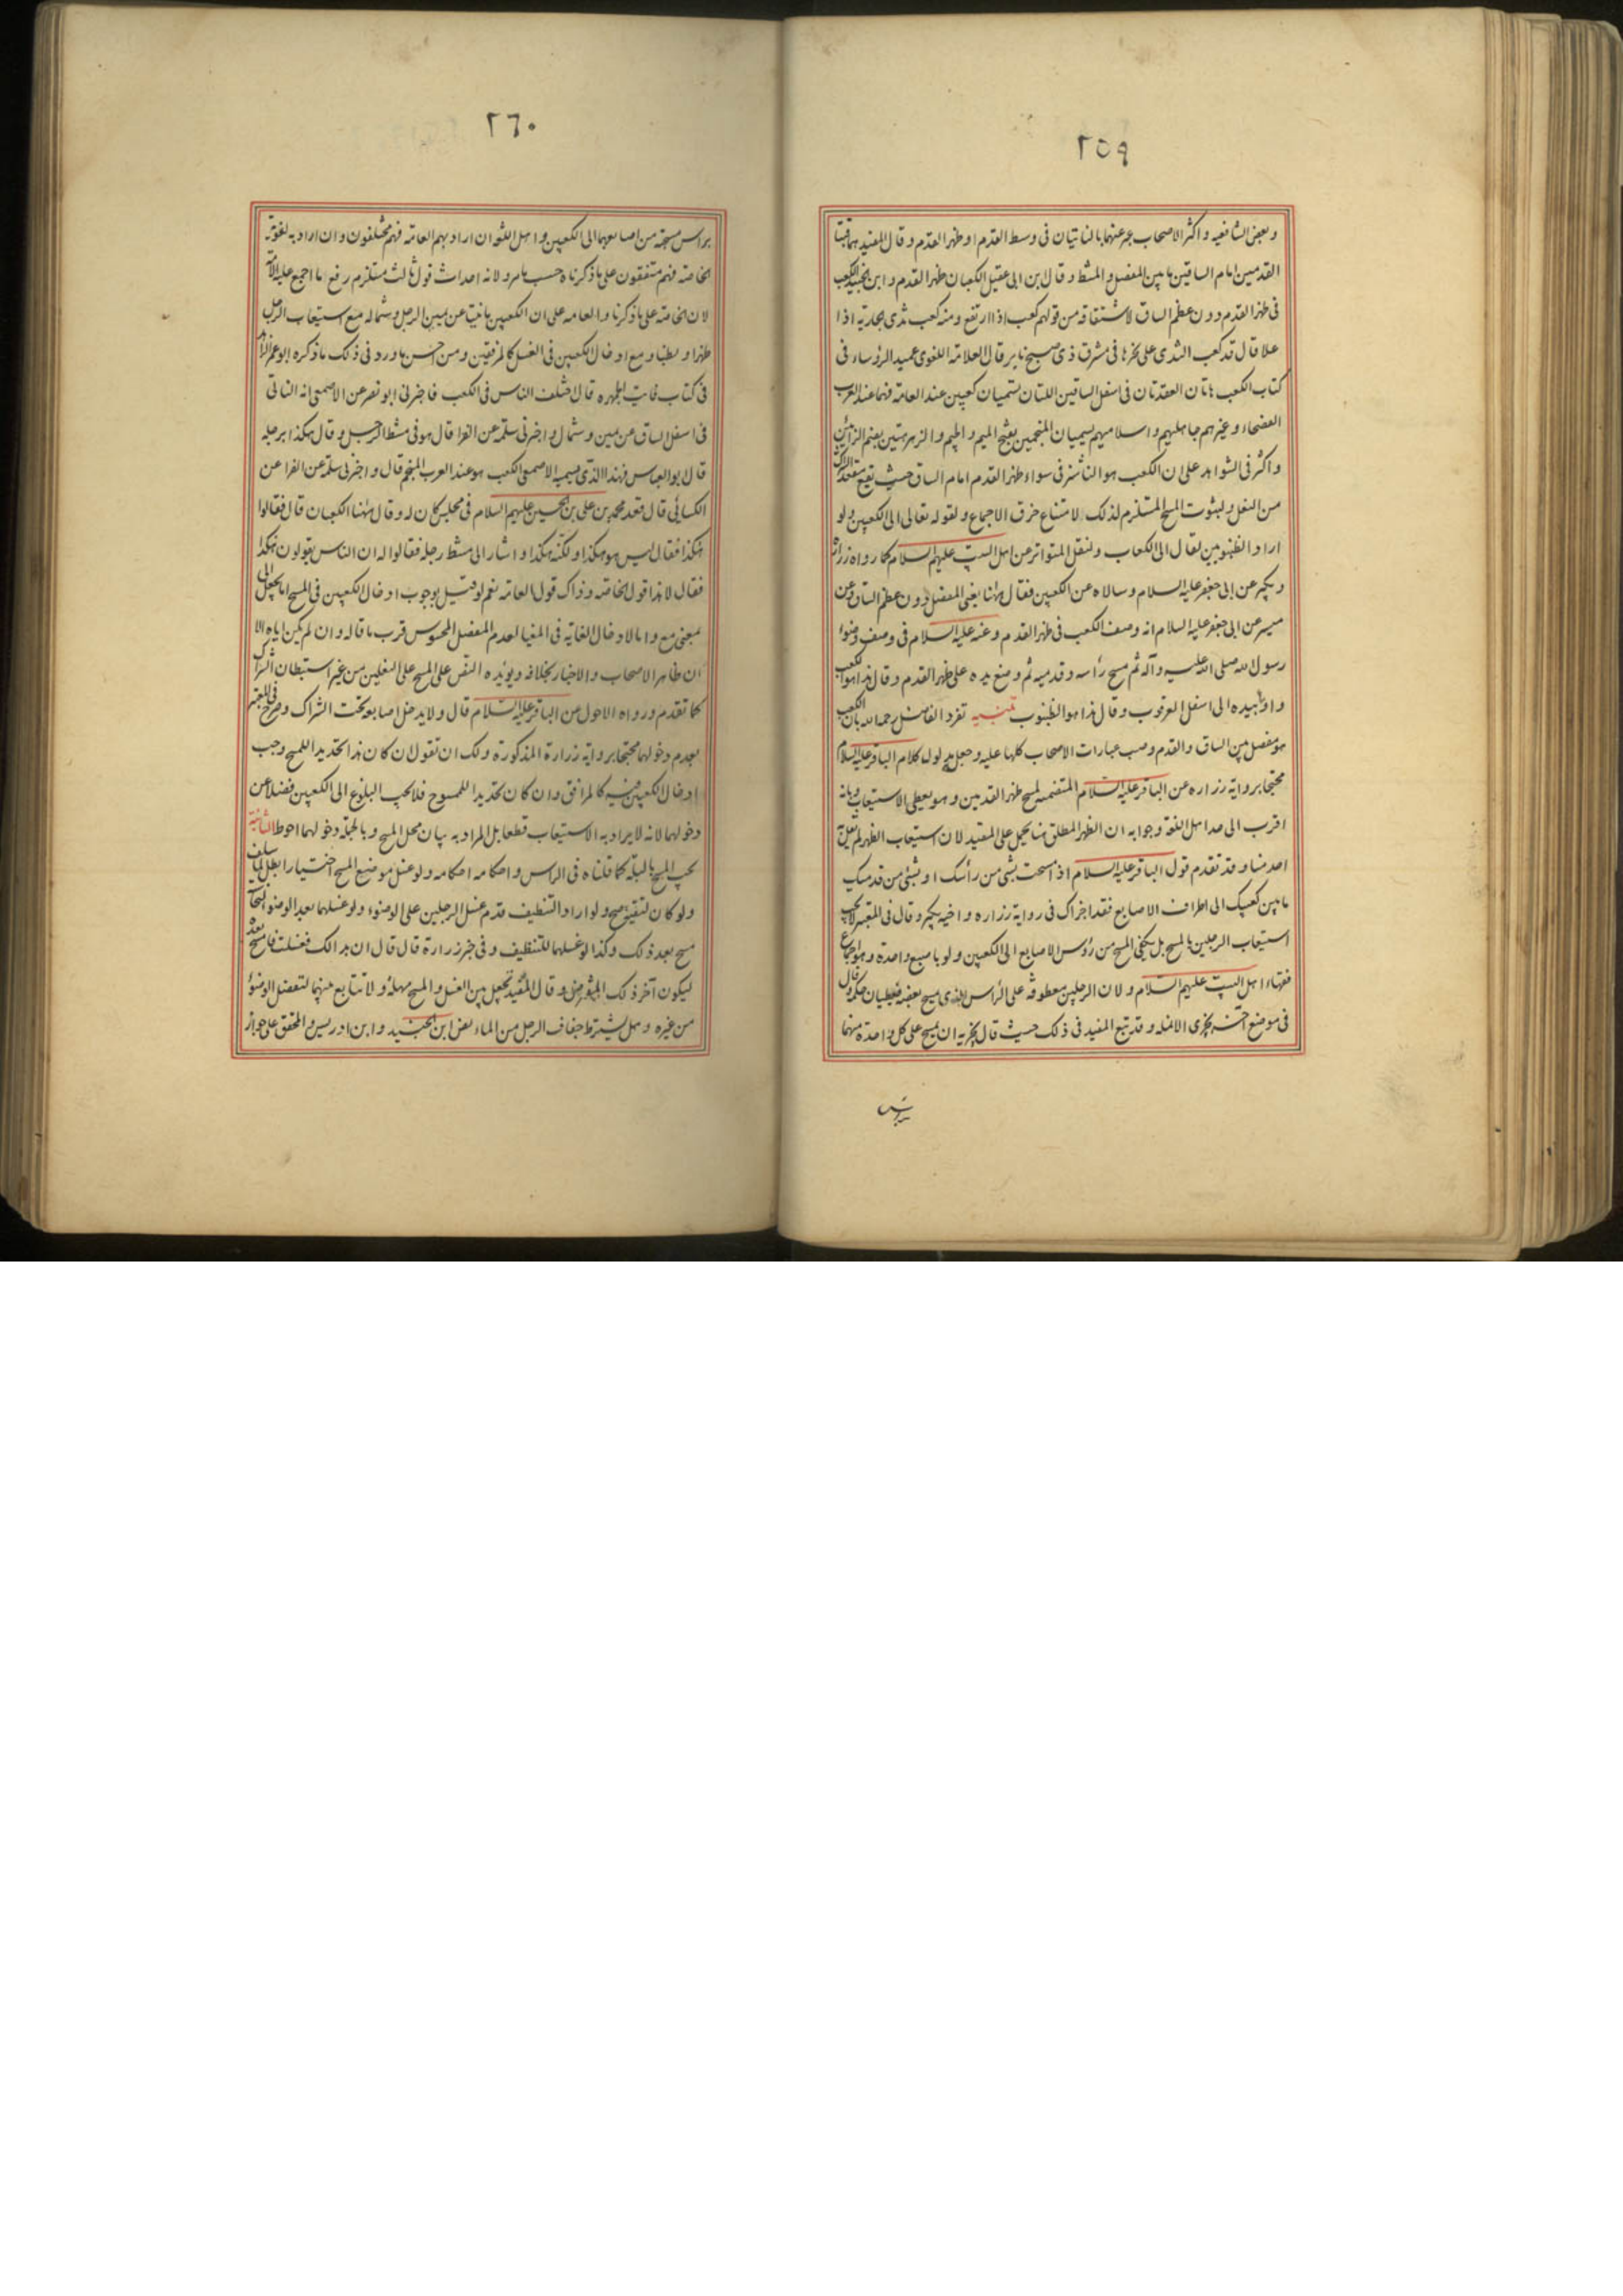 ٢٥٩
وبعض الشافعيه واكثر الاصحاب عبر عنهما بالناتيان فى وسط القدم او ظهر القدم وقال المفيد هما قبتا
القدمين امام الساقين ما بين المفصل والمشط وقال ابن ابى عقيل الكعبان ظهر القدم وابن الجنيد الكعب
فى ظهر القدم دون عظم الساق لاشتقاقه من قولهم كعب اذا ارتفع ومنه كعب ثدى الجاريه اذا
علا قال قد كعب الثدى على نحرها فى مشرق ذى صبح ناير قال العلامه اللغوى عميد الرؤساء فى
كتاب الكعب هاتان العقدتان فى اسفل الساقين اللتان تسميان كعبين عند العامه فهما عند العرب
الفصحاء وغيرهم جاهليهم واسلاميهم يسميان المنجمين بفتح الميم والجيم والزهرهتين بضم الزائين
واكثر فى الشواهد على ان الكعب هو الناشز فى سواء ظهر القدم امام الساق حيث يقع معقد الشراك
من النعل ولثبوت المسح المستلزم لذلك لامتناع خرق الاجماع ولقوله تعالى الى الكعبين ولو
اراد الظنبوبين لقال الى الكعاب ولنقل المتواتر عن اهل البيت عليهم السلام كما رواه زراره
وبكير عن ابى جعفر عليه السلام وسالاه عن الكعبين فقال هاهنا يعنى المفصل دون عظم الساق وعن
ميسر عن ابى جعفر عليه السلام انه وصف الكعب فى ظهر القدم وعنه عليه السلام فى وصف وضوء
رسول الله صلى الله عليه وآله ثم مسح رأسه وقدميه ثم وضع يده على ظهر القدم وقال هذا هو الكعب
واومأ بيده الى اسفل العرقوب وقال هذا هو الظنبوب تنبيه تفرد الفاضل رحمه الله بان الكعب
هو مفصل بين الساق والقدم وصب عبارات الاصحاب كلها عليه وجعله مدلول كلام الباقر عليه السلام
محتجا برواية زراره عن الباقر عليه السلام المتضمنه لمسح ظهر القدمين وهو يعطى الاستيعاب وبانه
اقرب الى حد اهل اللغة وجوابه ان الظهر المطلق هنا يحمل على المقيد لان استيعاب الظهر لم يقل به
احد منا وقد تقدم قول الباقر عليه السلام اذ امسحت بشئ من رأسك او بشئ من قدميك
ما بين كعبيك الى اطراف الاصابع فقد اجزاك فى رواية زراره واخيه بكير وقال فى المعتبر لا يجب
استيعاب الرجلين بالمسح بل يكفى المسح من رؤس الاصابع الى الكعبين ولو باصبع واحدة وهو اجماع
فقهاء اهل البيت عليهم السلام ولان الرجلين معطوفه على الراس الذى يمسح بعضه فيعطيان حكمه وقال
فى موضع آخر يجزى الانمله وقد تبع المفيد فى ذلك حيث قال يجزيه ان يمسح على كل واحدة منهما
براس
٢٦٠
براس مسبحته من اصابعهما الى الكعبين واهل اللغه ان اراد بهم العامه فهم مختلفون وان اراد به لغويه
الخاصه فهم متفقون على ما ذكرناه حسب ما مر ولانه احداث قول ثالث مستلزم رفع ما اجمع عليه الامه
لان الخاصه على ما ذكرنا والعامه على ان الكعبين ما نتئا عن يمين الرجل وشماله مع استيعاب الرجل
ظهرا وبطنا ومع ادخال الكعبين فى الغسل كالمرفقين ومن احسن ما ورد فى ذلك ما ذكره ابو عمر الزاهد
فى كتاب فايت الجمهره قال اختلف الناس فى الكعب فاخبرنى ابو نصر عن الاصمعى انه الناتى
فى اسفل الساق عن يمين وشمال واخبرنى سلمة عن الفرا قال هو فى مشط الرجل وقال هكذا برجله
قال ابو العباس فهذا الذى يسميه الاصمعى الكعب هو عند العرب المنجم قال واخبرنى سلمه عن الفرا عن
الكسائى قال قعد محمد بن على بن الحسين عليهم السلام فى مجلس كان له وقال ههنا الكعبان قال فقالوا
هكذا فقال ليس هو هكذا ولكنه هكذا واشار الى مشط رجله فقالوا له ان الناس يقولون هكذا
فقال لا هذا قول الخاصه وذاك قول العامه نعم لو قيل بوجوب ادخال الكعبين فى المسح اما لجعل الى
بمعنى مع واما لادخال الغايه فى المغيا لعدم المفصل المحسوس قرب ما قاله وان لم يكن اياه الا
ان ظاهر الاصحاب والاخبار بخلافه ويؤيده النص على المسح على النعلين من غير استبطان الشراك
كما تقدم ورواه الاحول عن الباقر عليه السلام قال ولا يدخل اصابعه تحت الشراك وصرح فى المعتبر
بعدم دخولهما محتجا برواية زرارة المذكورة ولك ان تقول ان كان هذا تحديدا للمسح وجب
ادخال الكعبين فيه كالمرافق وان كان تحديدا للممسوح فلا يجب البلوغ الى الكعبين فضلا عن
دخولهما لانه لا يراد به الاستيعاب قطعا بل المراد به بيان محل المسح وبالجمله دخولهما احوط الثانية
يجب المسح بالبلة كما قلناه فى الراس واحكامه احكامه ولو غسل موضع المسح اختيارا بطل لما سلف
ولو كان لتقية صح ولو اراد التنظيف قدم غسل الرجلين على الوضوء ولو غسلهما بعد الوضوء لنجاسة
مسح بعد ذلك وكذا لو غسلهما للتنظيف وفى خبر زرارة قال قال ان بدا لك فغسلت فامسح بعده
ليكون آخر ذلك المفروض وقال المفيد تجعل بين الغسل والمسح مهله ولا تتابع بينهما لتفصل الوضوء
من غيره وهل يشترط جفاف الرجل من الماء ابن الجنيد وابن ادريس والمحقق على جواز